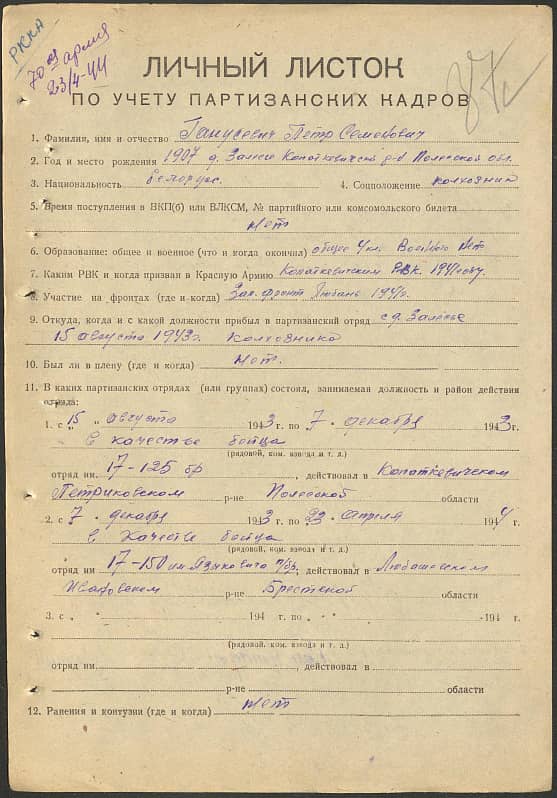 РККА
70ая армия
23/4-44
ЛИЧНЫЙ ЛИСТОК
ПО УЧЕТУ ПАРТИЗАНСКИХ КАДРОВ
1. Фамилия, имя и отчество Ганусевич Петр Семенович
2. Год и место рождения 1907 д. Залесье Копаткевичский р-н Полесской обл.
3. Национальность белорус. 4. Соцположение колхозник
5. Время поступления в ВКП(б) или ВЛКСМ, № партийного или комсомольского билета
нет
6. Образование: общее и военное (что и когда окончил) общее 4 кл. Военное нет
7. Каким РВК и когда призван в Красную Армию Копаткевичским РВК 1941 году
8. Участие на фронтах (где и когда) Зап. Фронт Любань 1941г.
9. Откуда, когда и с какой должности прибыл в партизанский отряд с д. Залесье
15 августа 1943г. колхозника
10. Был ли в плену (где и когда) нет.
11. В каких партизанских отрядах (или группах) состоял, занимаемая должность и район действия
отряда:
1. с „15 „ августа 1943 г. по „7 „ декабря 1943 г.
в качестве бойца
(рядовой, ком. взвода и т. д.)
отряд им. 17-125 бр, действовал в Копаткевичском
Петриковском р-не Полесской области
2. с 7 „ декабря 1943 г. по 23 „ апреля 1944 г.
в качестве бойца
(рядовой, ком. взвода и т. д.)
отряд им 17-150 им Языковича п/бр, действовал в Любашевском
Ивановском р-не Брестской области
3. с „ „ 194 г. по „ „ 194 г.
(рядовой, ком. взвода и т. д.)
отряд им. действовал в
р-не области
12. Ранения и контузии (где и когда) нет